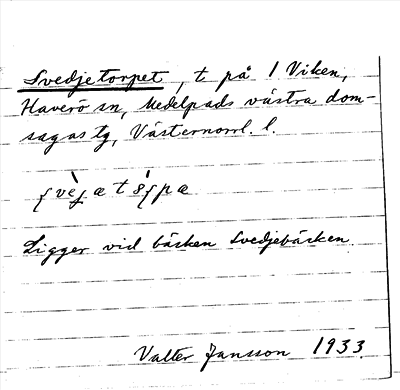 Svedjetorpet, t på 1 Viken,
Haverö sn, Medelpads västra dom-
sagas tg, Västernorrl. l.
Ligger vid bäcken Svedjebäcken.
Valter Jansson 1933.